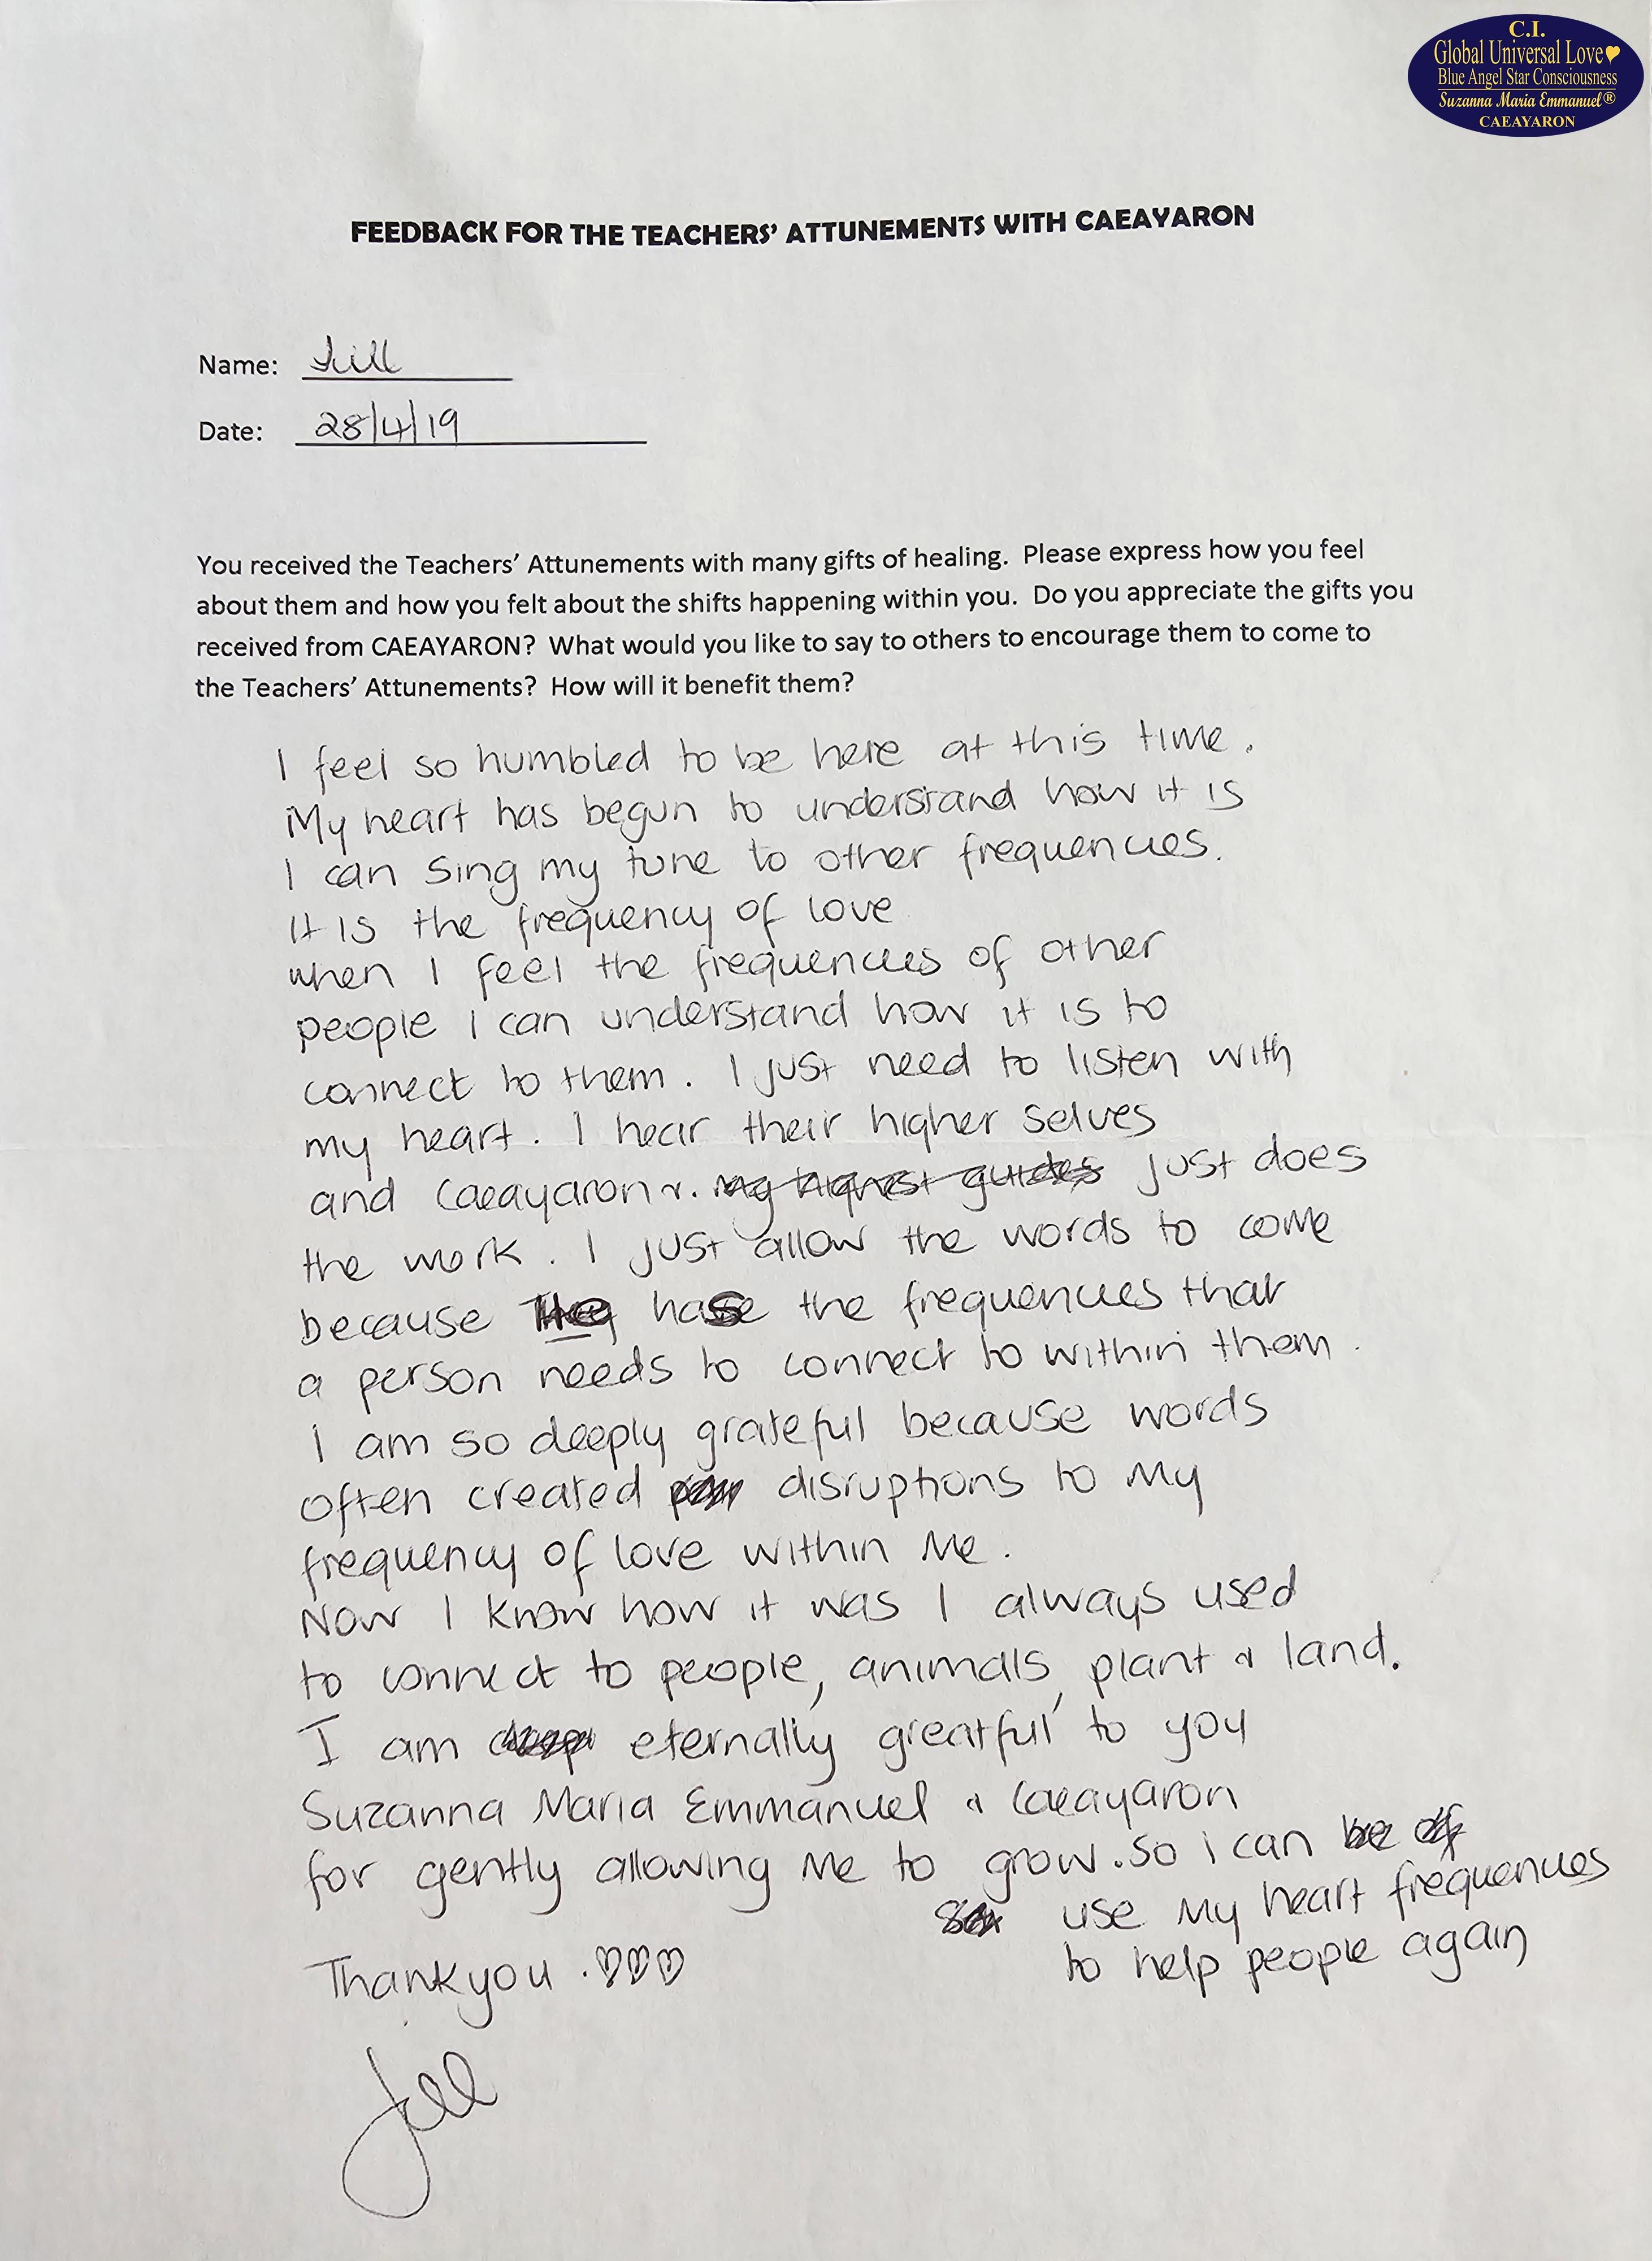 C.I.
Global Universal Love♥
Blue Angel Star Consciousness
Suzanna Maria Emmanuel®
CAEAYARON
FEEDBACK FOR THE TEACHERS' ATTUNEMENTS WITH CAEAYARON
Name: Jill
Date: 28/4/19
You received the Teachers' Attunements with many gifts of healing. Please express how you feel
about them and how you felt about the shifts happening within you. Do you appreciate the gifts you
received from CAEAYARON? What would you like to say to others to encourage them to come to
the Teachers' Attunements? How will it benefit them?
I feel so humbled to be here at this time.
My heart has begun to understand how it is
I can sing my tune to other frequencies.
It is the frequency of love
when I feel the frequencies of other
people I can understand how it is to
connect to them. I just need to listen with
my heart. I hear their higher selves
and Caeayaron my highest guides just does
the work. I just allow the words to come
because has the frequencies that
a person needs to connect to within them.
I am so deeply grateful because words
often created disruptions to my
frequency of love within me.
Now I know how it was I always used
to connect to people, animals, plant & land.
I am eternally greatful to you
Suzanna Maria Emmanuel & Caeayaron
for gently allowing me to grow. so i can be
use my heart frequencies
to help people again
Thankyou. ♡♡♡
Jill